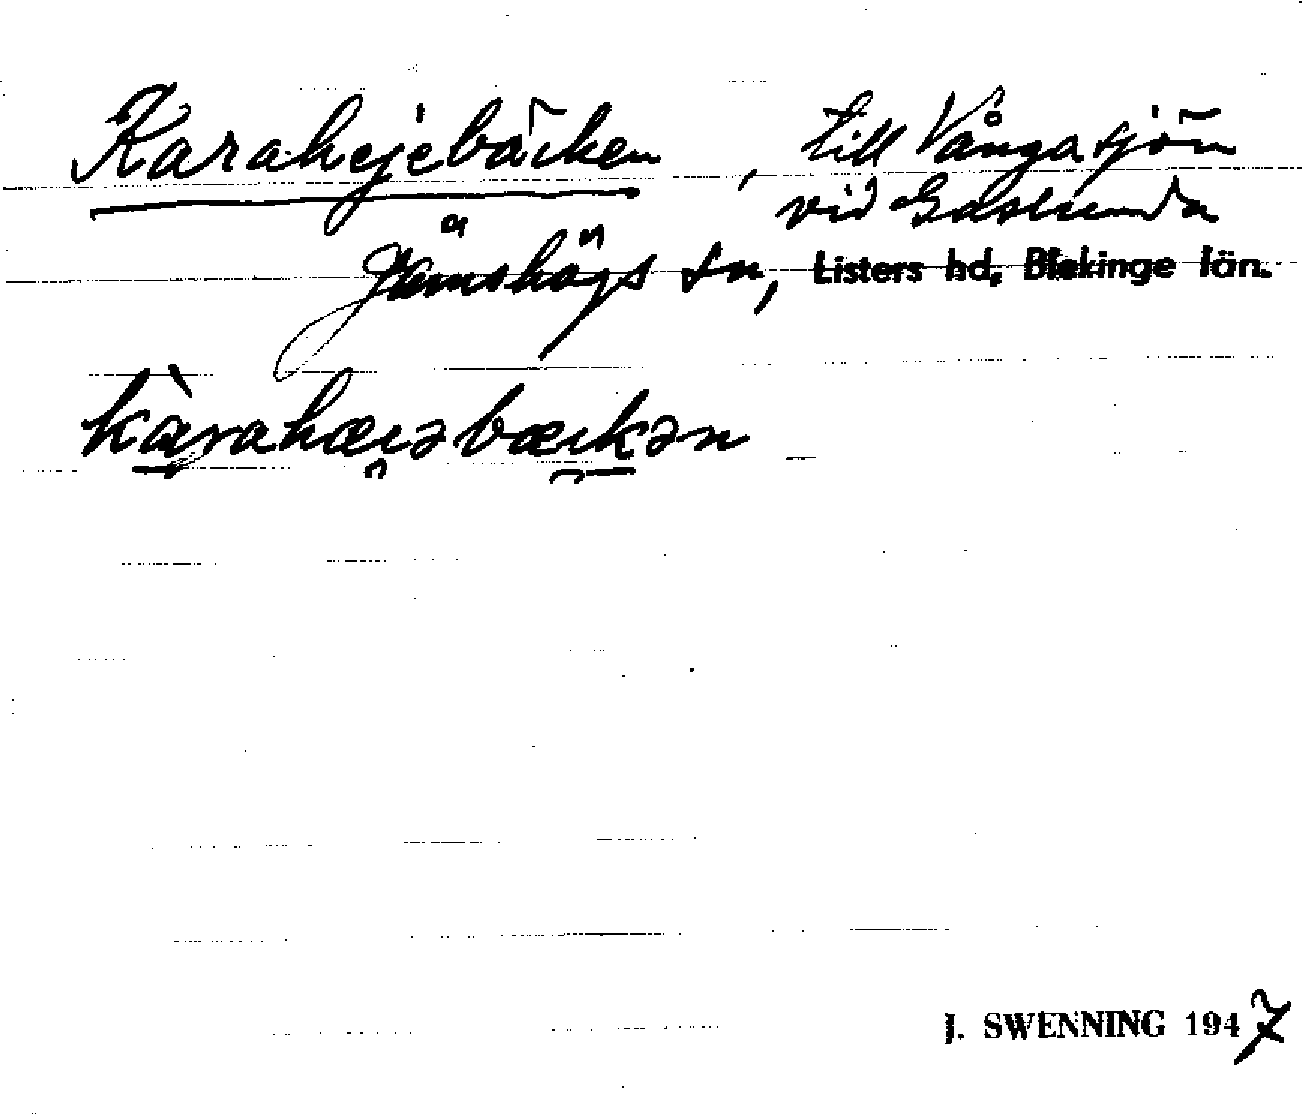 Karahejebäcken, till Vångasjön
vid Gaslunda
Jämshögs sn, Listers hd, Blekinge län.
J. SWENNING 1947